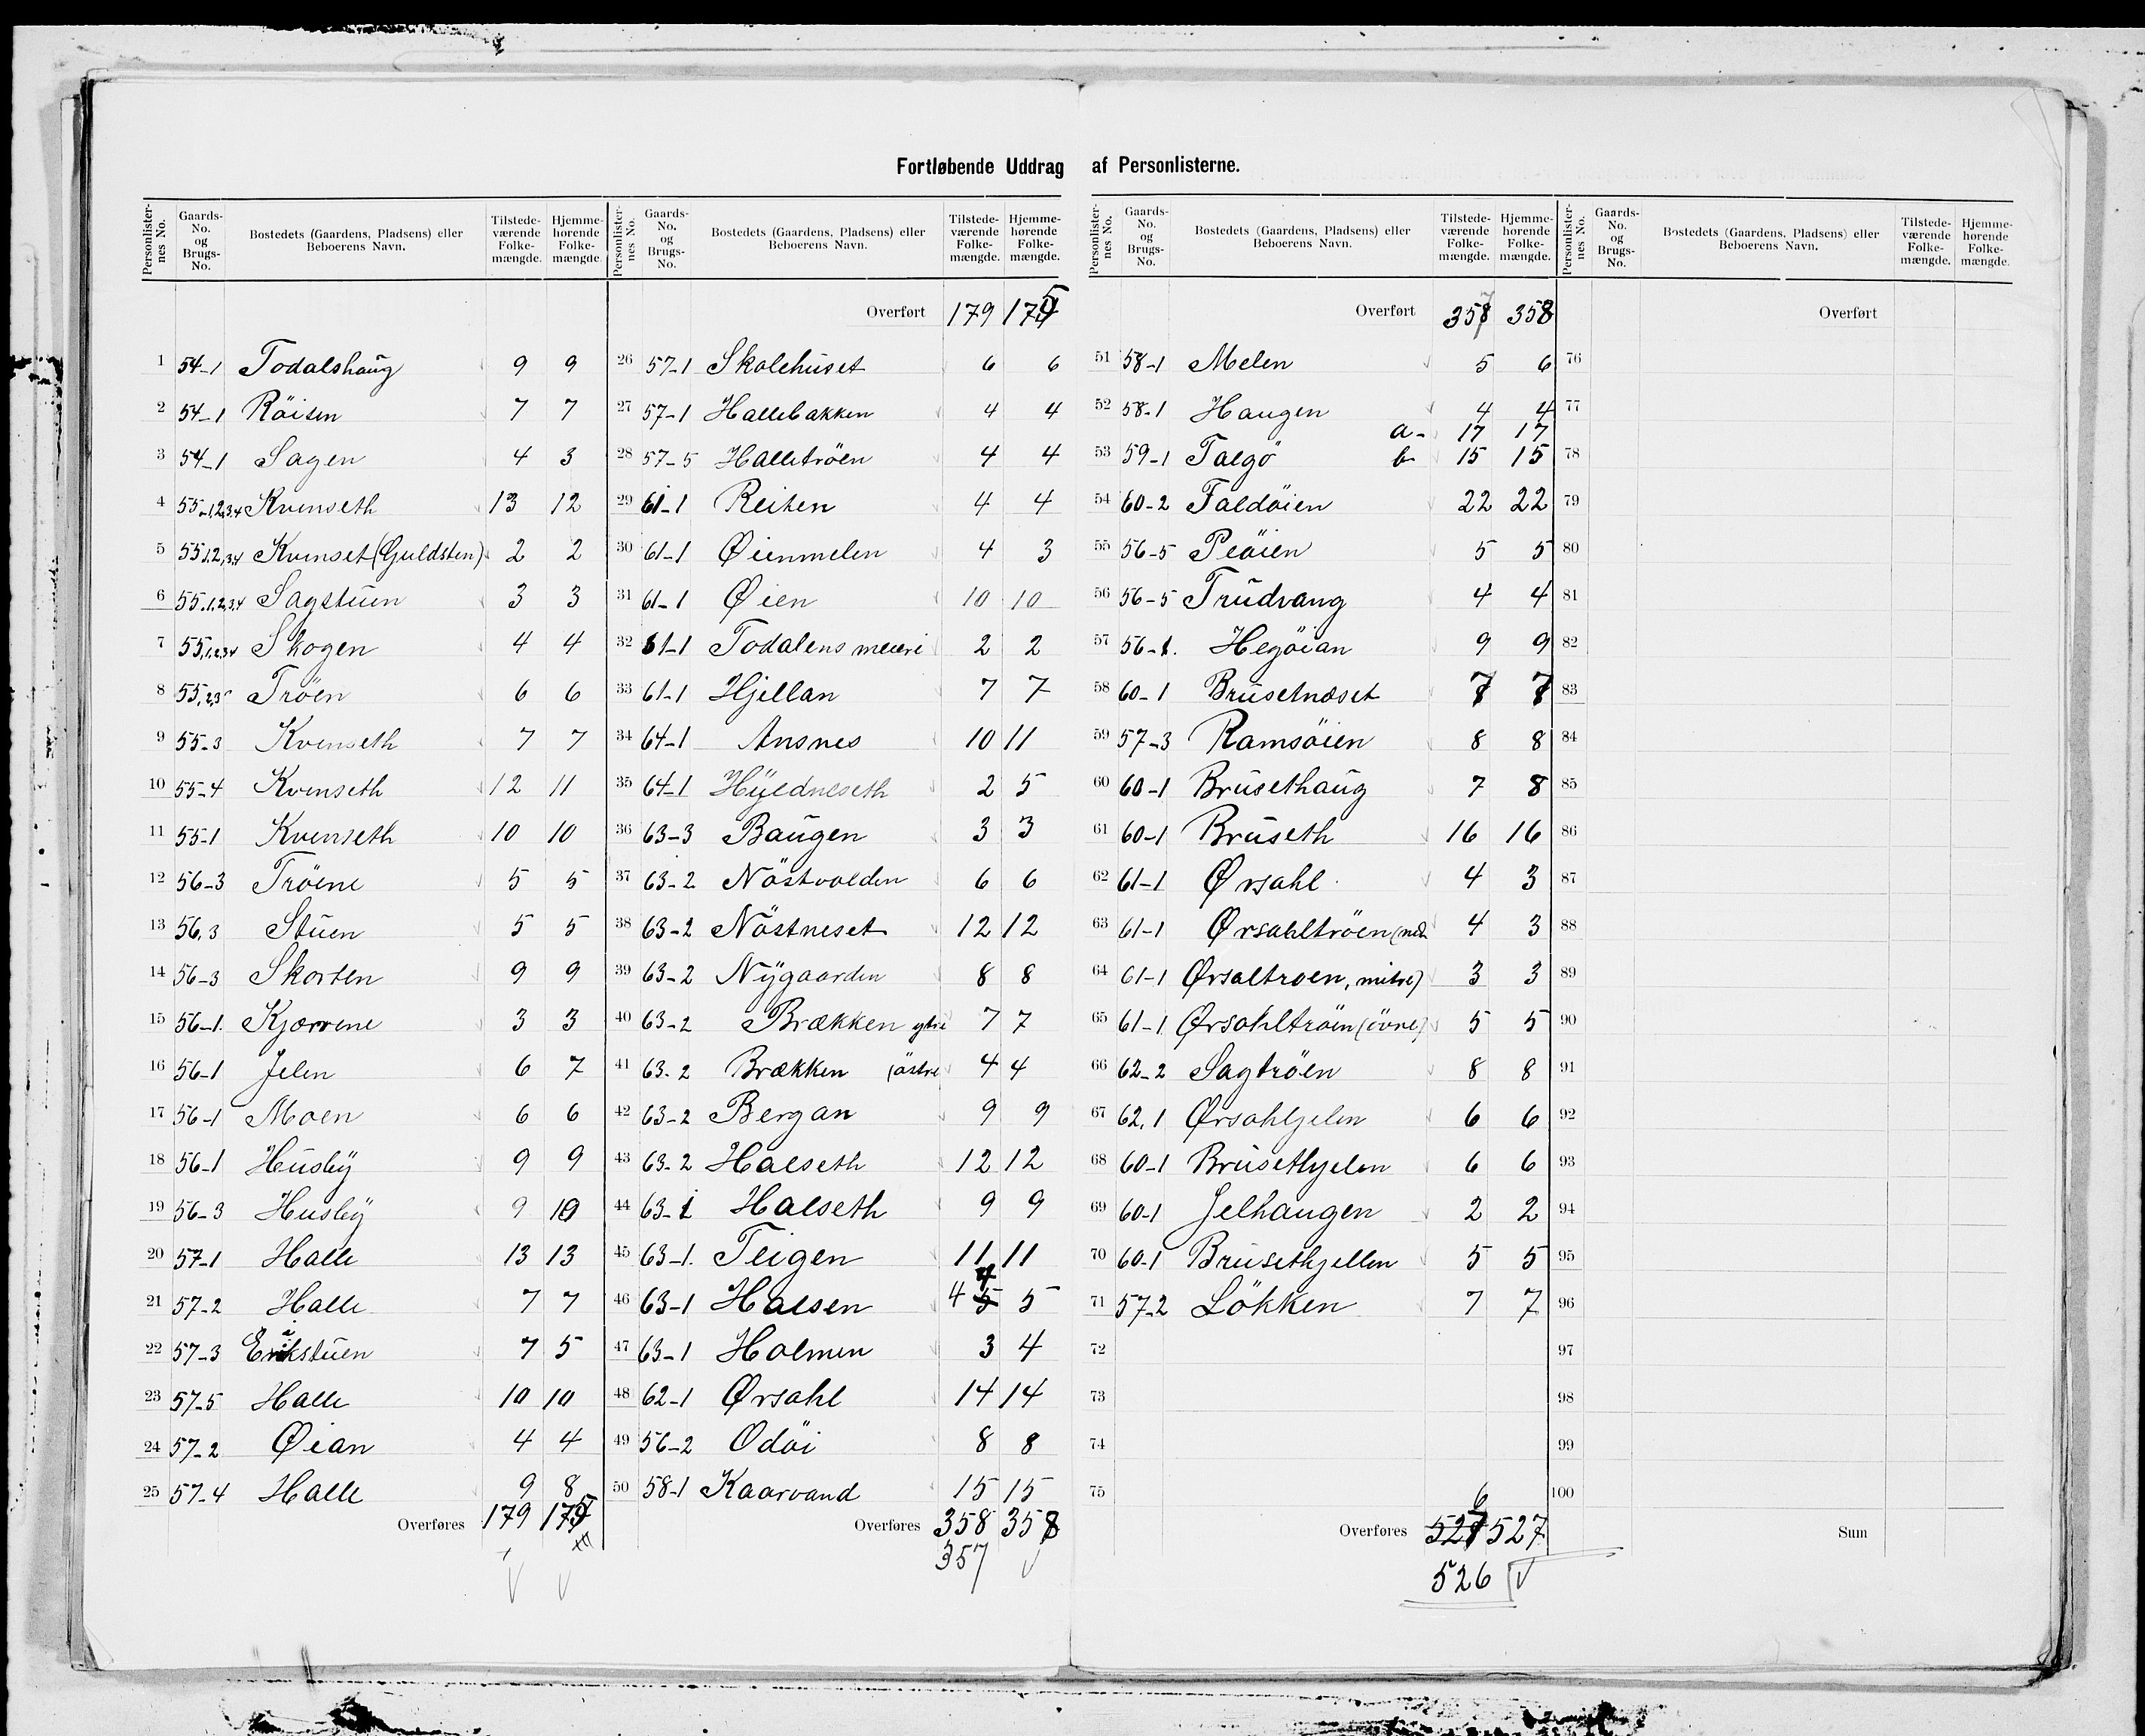 Fortløbende Uddrag af Personlisterne.
Personlister-nes No. Gaards-No. og Brugs-No. Bostedets (Gaardens, Pladsens) eller Beboerens Navn. Tilstede-værende Folke-mængde. Hjemme-hørende Folke-mængde.
1 54-1 Todalshaug 9 9
2 54-1 Röisen 7 7
3 54-1 Sagen 4 3
4 55-1,2,3,4 Kvenseth 13 12
5 55,1,2,3,4 Kvenset (Guldsten) 2 2
6 55,1,2,3,4 Sagstuen 3 3
7 55,1,2,3,4 Skogen 4 4
8 Tröen 6 6
9 55-3 Kvenseth 7 7
10 55-4 Kvenseth 12 11
11 55-1 Kvenseth 10 10
12 56-3 Tröene 5 5
13 56,3 Stuen 5 5
14 56-3 Skorten 9 9
15 56-1. Kjærrene 3 3
16 56-1 Jelen 6 7
17 56-1 Moen 6 6
18 56-1 Husby 9 9
19 56-3 Husby 9 10
20 57-1 Halle 13 13
21 57-2 Halle 7 7
22 57-3 Erikstuen 7 5
23 57-5 Halle 10 10
24 57-2 Øian 4 4
25 57-4 Halle 9 8
Overføres 179 175
Personlister-nes No. Gaards-No. og Brugs-No. Bostedets (Gaardens, Pladsens) eller Beboerens Navn. Tilstede-værende Folke-mængde. Hjemme-hørende Folke-mængde.
Overført 179 175
26 57-1 Skolehuset 6 6
27 57-1 Hallebakken 4 4
28 57-5 Halletröen 4 4
29 61-1 Reiten 4 4
30 61-1 Øienmelen 4 3
31 61-1 Øien 10 10
32 61-1 Todalens meieri 2 2
33 61-1 Hjellan 7 7
34 64-1 Ansnes 10 11
35 64-1 Hyldneseth 2 5
36 63-3 Baugen 3 3
37 63-2 Nöstvolden 6 6
38 63-2 Nöstneset 12 12
39 63-2 Nygaarden 8 8
40 63-2 Brækken ytre 7 7
41 63-2 Brækken (östre 4 4
42 63-2 Bergan 9 9
43 63-2 Halseth 12 12
44 63-1 Halseth 9 9
45 63-1. Teigen 11 11
4
46 63-1 Halsen 4 5 5
47 63-1 Holmen 3 4
48 62-1 Ørsahl 14 14
49 56-2 Odöi 8 8
50 58-1 Kaarvand 15 15
Overføres 358 358
357
Personlister-nes No. Gaards-No. og Brugs-No. Bostedets (Gaardens, Pladsens) eller Beboerens Navn. Tilstede-værende Folke-mængde. Hjemme-hørende Folke-mængde.
Overført 357 358
51 58-1 Melen 5 6
52 58-1 Haugen 4 4
a- 17 17
53 59-1 Talgö b- 15 15
54 60-2 Faldöien 22 22
55 56-5 Peöien 5 5
56 56-5 Trudvang 4 4
57 56-1. Hegöian 9 9
58 60-1 Brusetnæset 7 7
59 57-3 Ramsöien 8 8
60 60-1 Brusethaug 7 8
61 60-1 Bruseth 16 16
62 61-1 Ørsahl 4 3
63 61-1 Ørsahltröen (ned 4 3
64 61-1 Ørsaltroen, mitre) 3 3
65 61-1 Ørsahltröen (övre) 5 5
66 62-2 Sagtröen 8 8
67 62,1 Ørsahlgjelen 6 6
68 60-1 Brusethjelen 6 6
69 60-1 Jelhaugen 2 2
70 60-1 Brusethjellen 5 5
71 57-2 Lökken 7 7
72
73
74
75
6
Overføres 527 527
526
Personlister-nes No. Gaards-No. og Brugs-No. Bostedets (Gaardens, Pladsens) eller Beboerens Navn. Tilstede-værende Folke-mængde. Hjemme-hørende Folke-mængde.
Overført
76
77
78
79
80
81
82
83
84
85
86
87
88
89
90
91
92
93
94
95
96
97
98
99
100
Sum